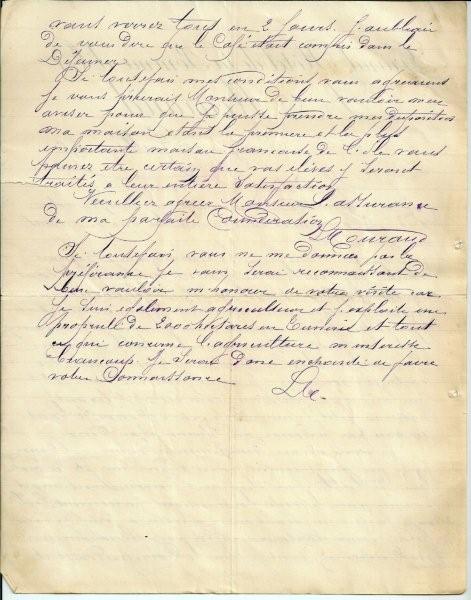 vous verrez tout en 2 jours. J'oubliais
de vous dire que le Café était compris dans le
Déjeuner.
Si toutefois mes conditions vous agréeraient
je vous prierais Monsieur de bien vouloir m'en
aviser pour que je puisse prendre mes dispositions
ma maison étant la première et la plus
importante maison française de vous
pouvez être certain que vos élèves y seront
traités a leur entière satisfaction
Veuillez agréer Monsieur l'assurance
de ma parfaite Considération
Si toutefois vous ne me donniez pas la
préférence je vous serai reconnaissant de
bien vouloir m'honorer de votre visite car
je suis également agriculteur et j'exploite une
propriété de 2000 hectares en Tunisie et tout
ce qui concerne l'agriculture m'intéresse
beaucoup. Je serai donc enchanté de faire
votre Connaissance